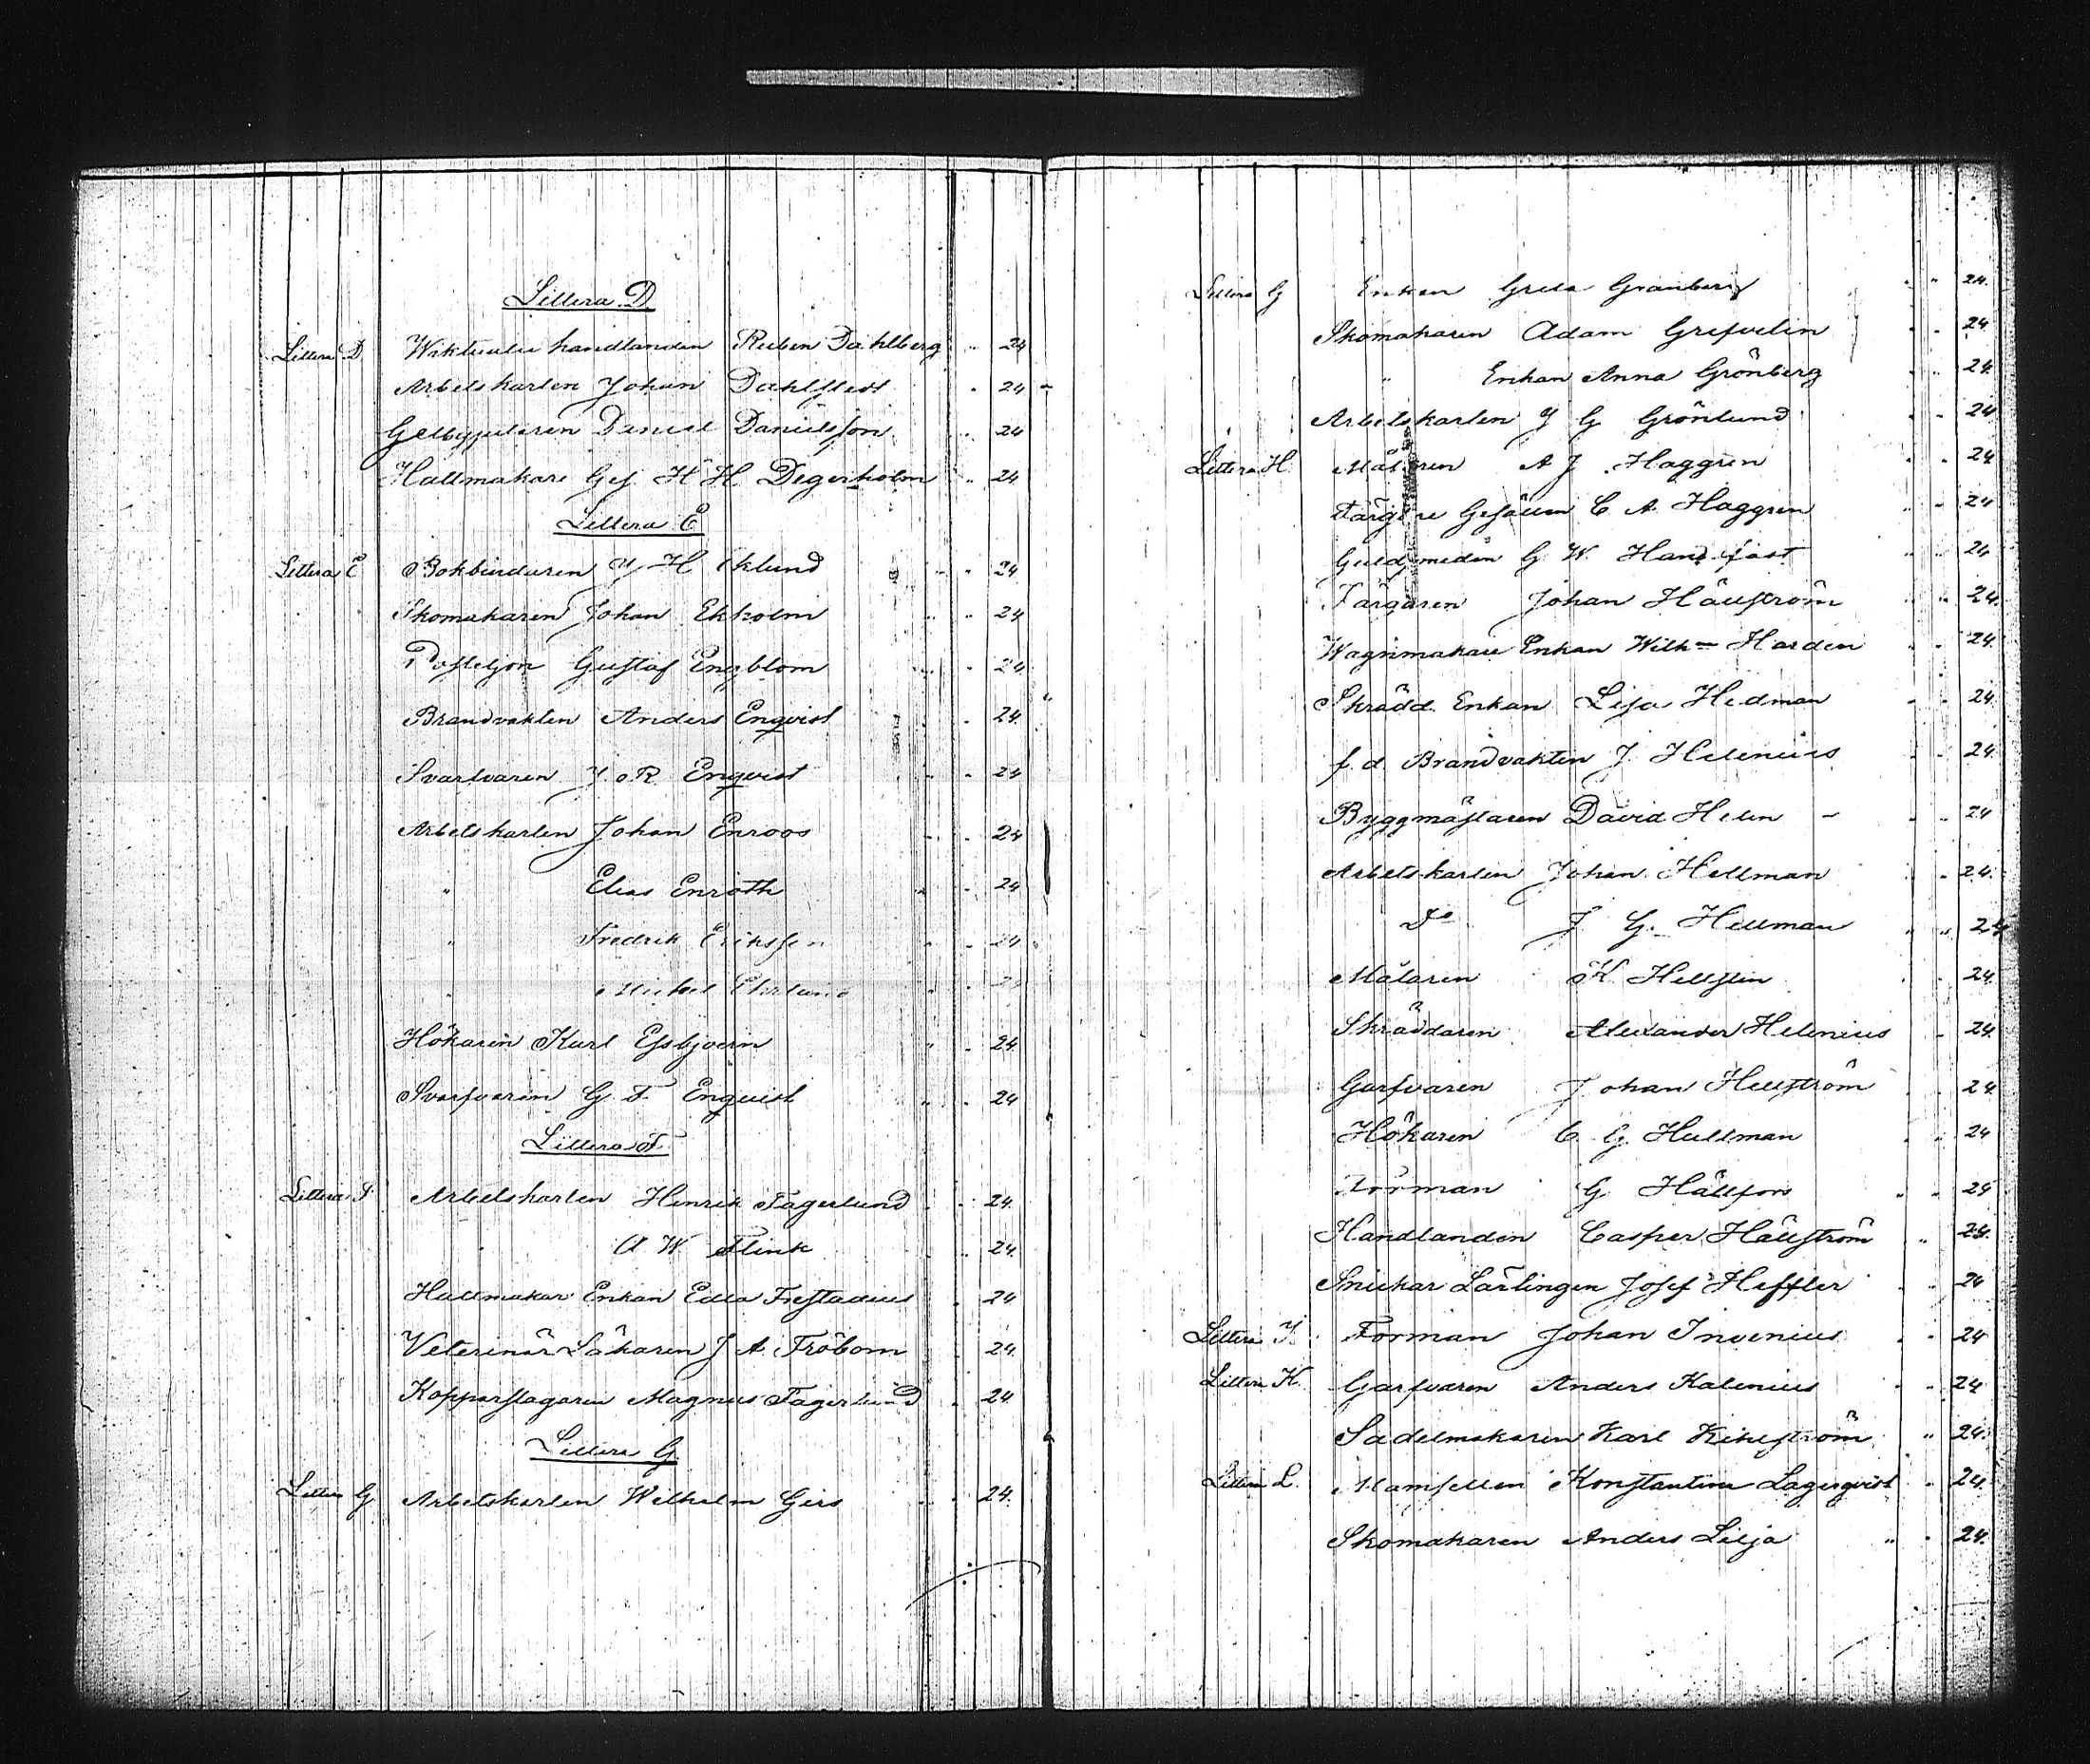 Littera D
Littera D Wiktualie handlanden Ruben Dahlberg " " 24
Arbetskarlen Johan Dahlstedt " 24
Gelbgjutaren Daniel Danielsson " 24
Hattmakare Ges. H H Degerholm " 24
Littera E
Littera E Bokbindaren J H Eklund " " 24
Skomakaren Johan Ekholm " " 24
Postiljon Gustaf Engblom " " 24
Brandvakten Anders Enqvist " 24
Svarfvaren J. R Enqvist " " 24
Arbetskarlen Johan Enroos " " 24
" Elias Enroth " " 24
" Fredrik Eriksson " " 24
" Michel " "
Hökaren Karl Esbjoern " " 24
Svarfvaren G. F. Enqvist " " 24
Littera F
Littera F Arbetskarlen Henrik Fagerlund " " 24
" A W Flink " 24
Hattmakar Enkan Edla Frestadius " 24
Veterinär Läkaren J A Fröbom " 24
Kopparslagaren Magnus Fagerlund " 24
Littera G
Littera G Arbetskarlen Wilhelm Girs " " 24.
Littera G Enkan Greta Granberg " " 24.
Skomakaren Adam Grefvelin " " 24
" Enkan Anna Grönberg " " 24
Arbetskarlen J G Grönlund " " 24
Littera H. Målaren A J Haggren " " 24
Färgare Gesällen C A Haggren " " 24
Guldsmeden G W Handfast " " 24
Färgaren Johan Hällström " " 24.
Wagnmakare Enkan Wilhna Harden " " 24.
Skrädd. Enkan Lisa Hedman " " 24
f. d. Brandvakten J. Helenius " " 24.
Byggmästaren David Helen – " " 24
Arbetskarlen Johan Hellman " " 24.
Do J G. Hellman " " 24
Målaren K Hellsten " " 24
Skräddaren Alexander Helenius " 24.
Garfvaren Johan Hellström " " 24
Hökaren C. G. Hultman " " 24
Forman G Hällfors " " 24
Handlanden Casper Hällström " 24.
Snickar Lärlingen Josef Heffler " " 24
Littera I. Forman Johan Invenius " " 24
Littera K. Garfvaren Anders Kalenius " " 24
Sadelmakaren Karl " 24
Littera L. Mamsellen Konstantina Lagerqvist " 24.
Skomakaren Anders Lilja " " 24.